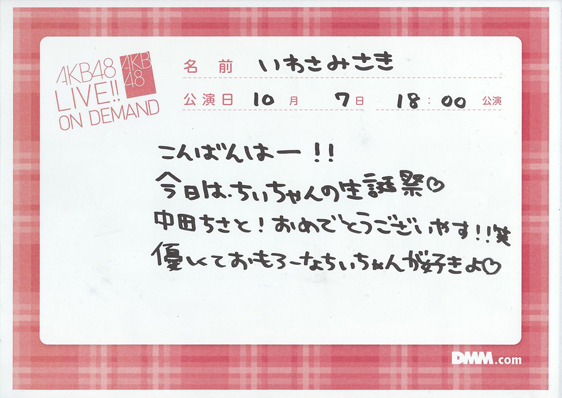 AKB48
LIVE!!
ON DEMAND
AKB
48
名 前 いわさみさき
公演日 10月 7日 18:00 公演
こんばんはー!!
今日は、ちぃちゃんの生誕祭♡
中田ちさと!おめでとうございやす!!笑
優しくておもろーなちぃちゃんが好きよ♡
DMM.com